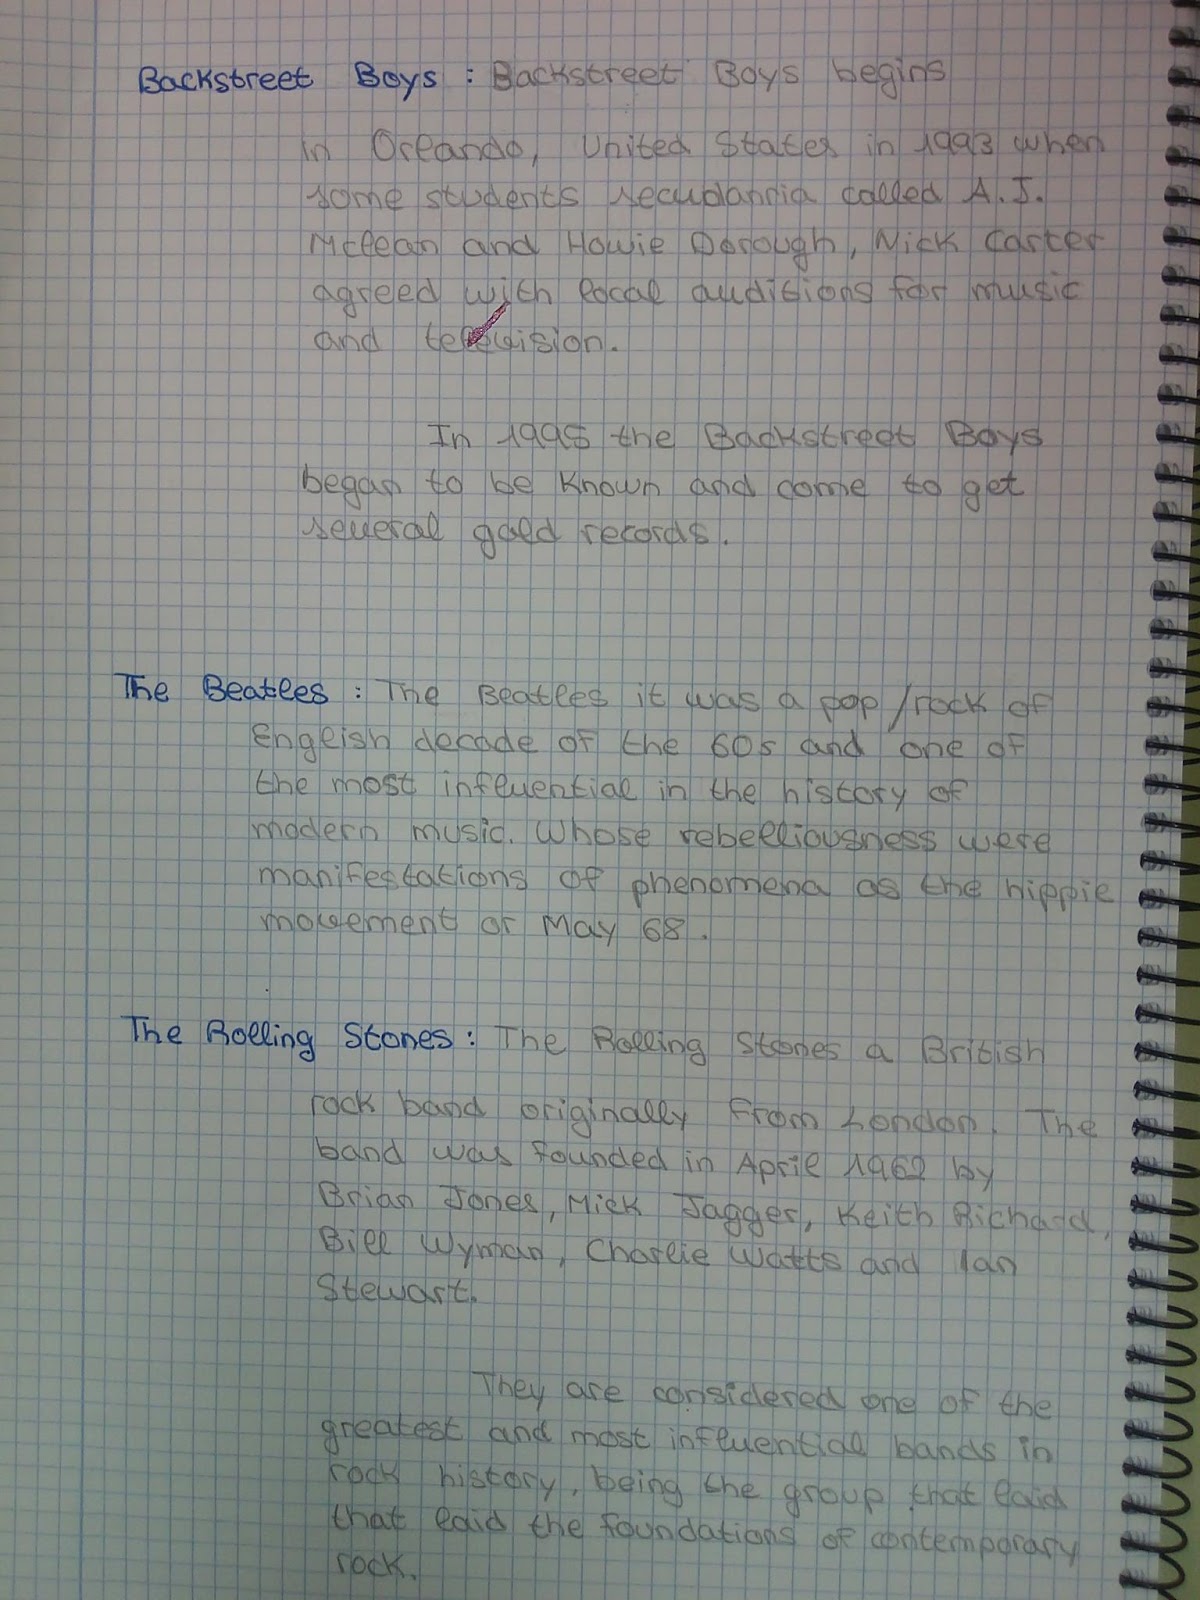 Backstreet Boys : Backstreet Boys begins
in Orleando, United States in 1993 when
some students secudannia called A.J.
Mclean and Howie Dorough, Nick Carter
agreed with local auditions for music
and television.
In 1995 the Backstreet Boys
began to be known and come to get
several gold records.
The Beatles : The Beatles it was a pop/rock of
English decade of the 60s and one of
the most influential in the history of
modern music. Whose rebelliousness were
manifestations of phenomena as the hippie
movement or May 68.
The Rolling Stones : The Rolling Stones a British
rock band originally from London. The
band was founded in April 1962 by
Brian Jones, Mick Jagger, Keith Richard,
Bill Wyman, Charlie Watts and Ian
Stewart.
They are considered one of the
greatest and most influential bands in
rock history, being the group that laid
that laid the foundations of contemporary
rock.